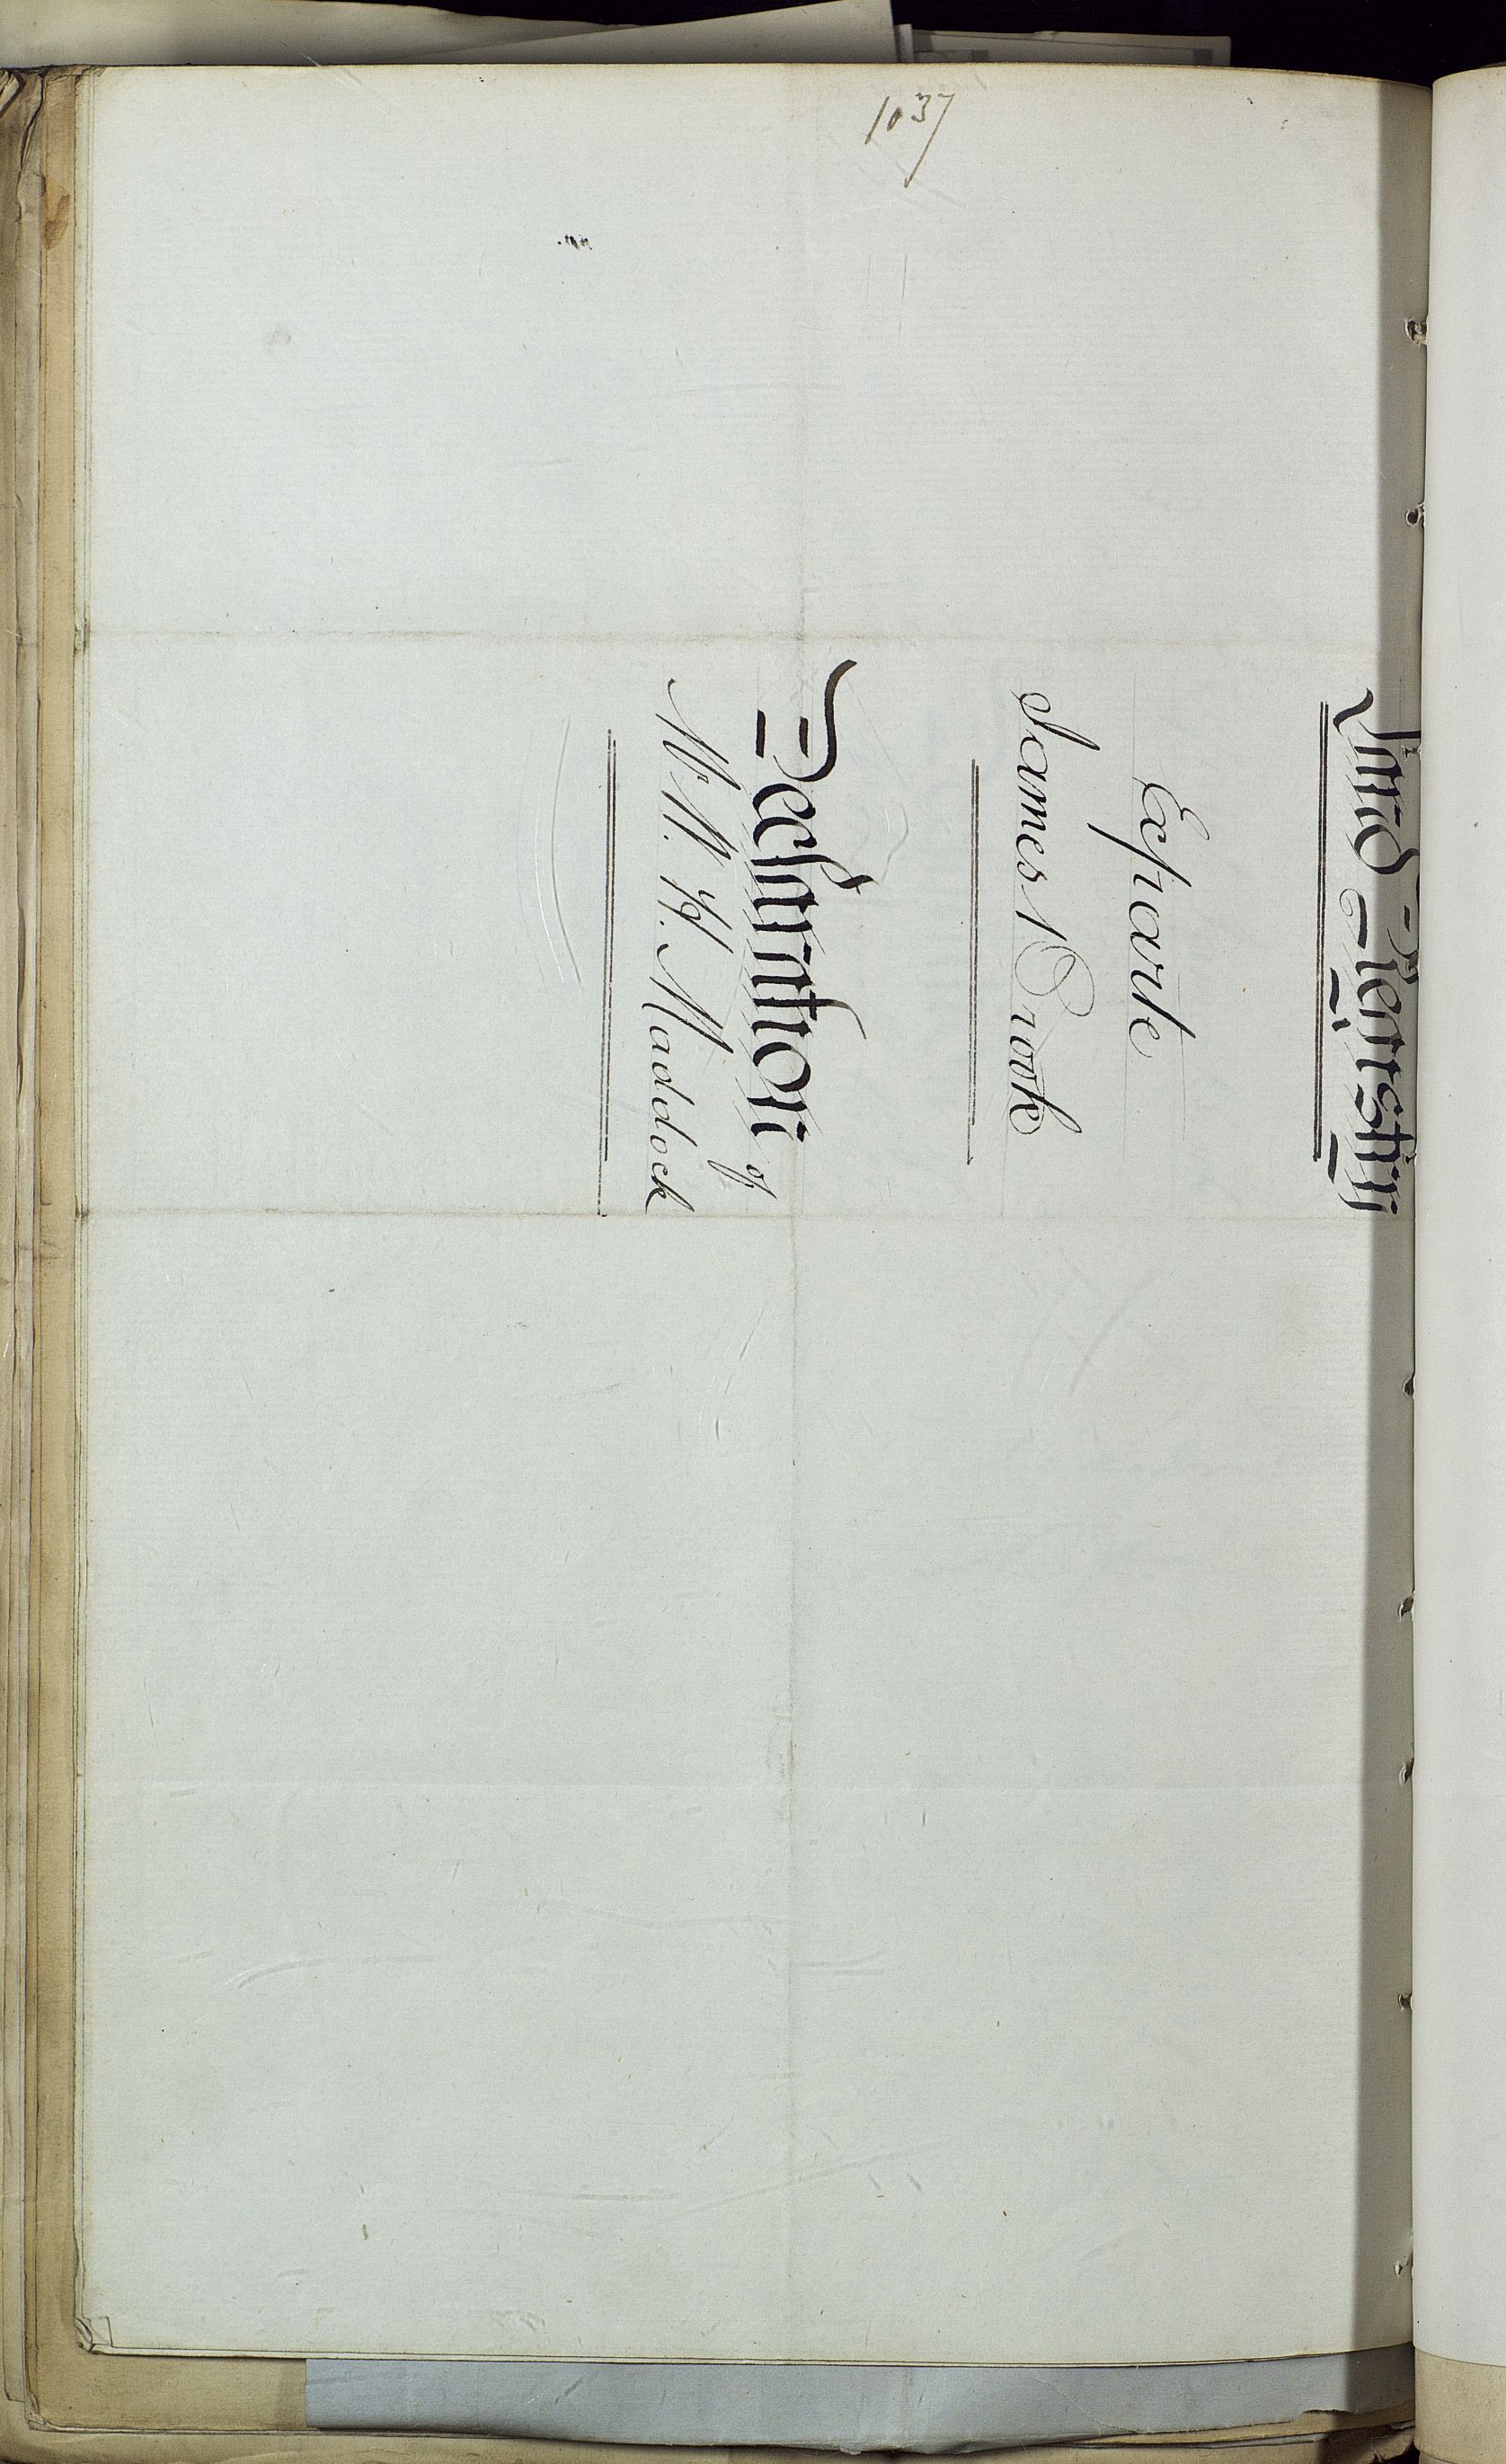 1037
Land Registry
Exparte
James Brook
Declaration of
Mr W. H. Maddock